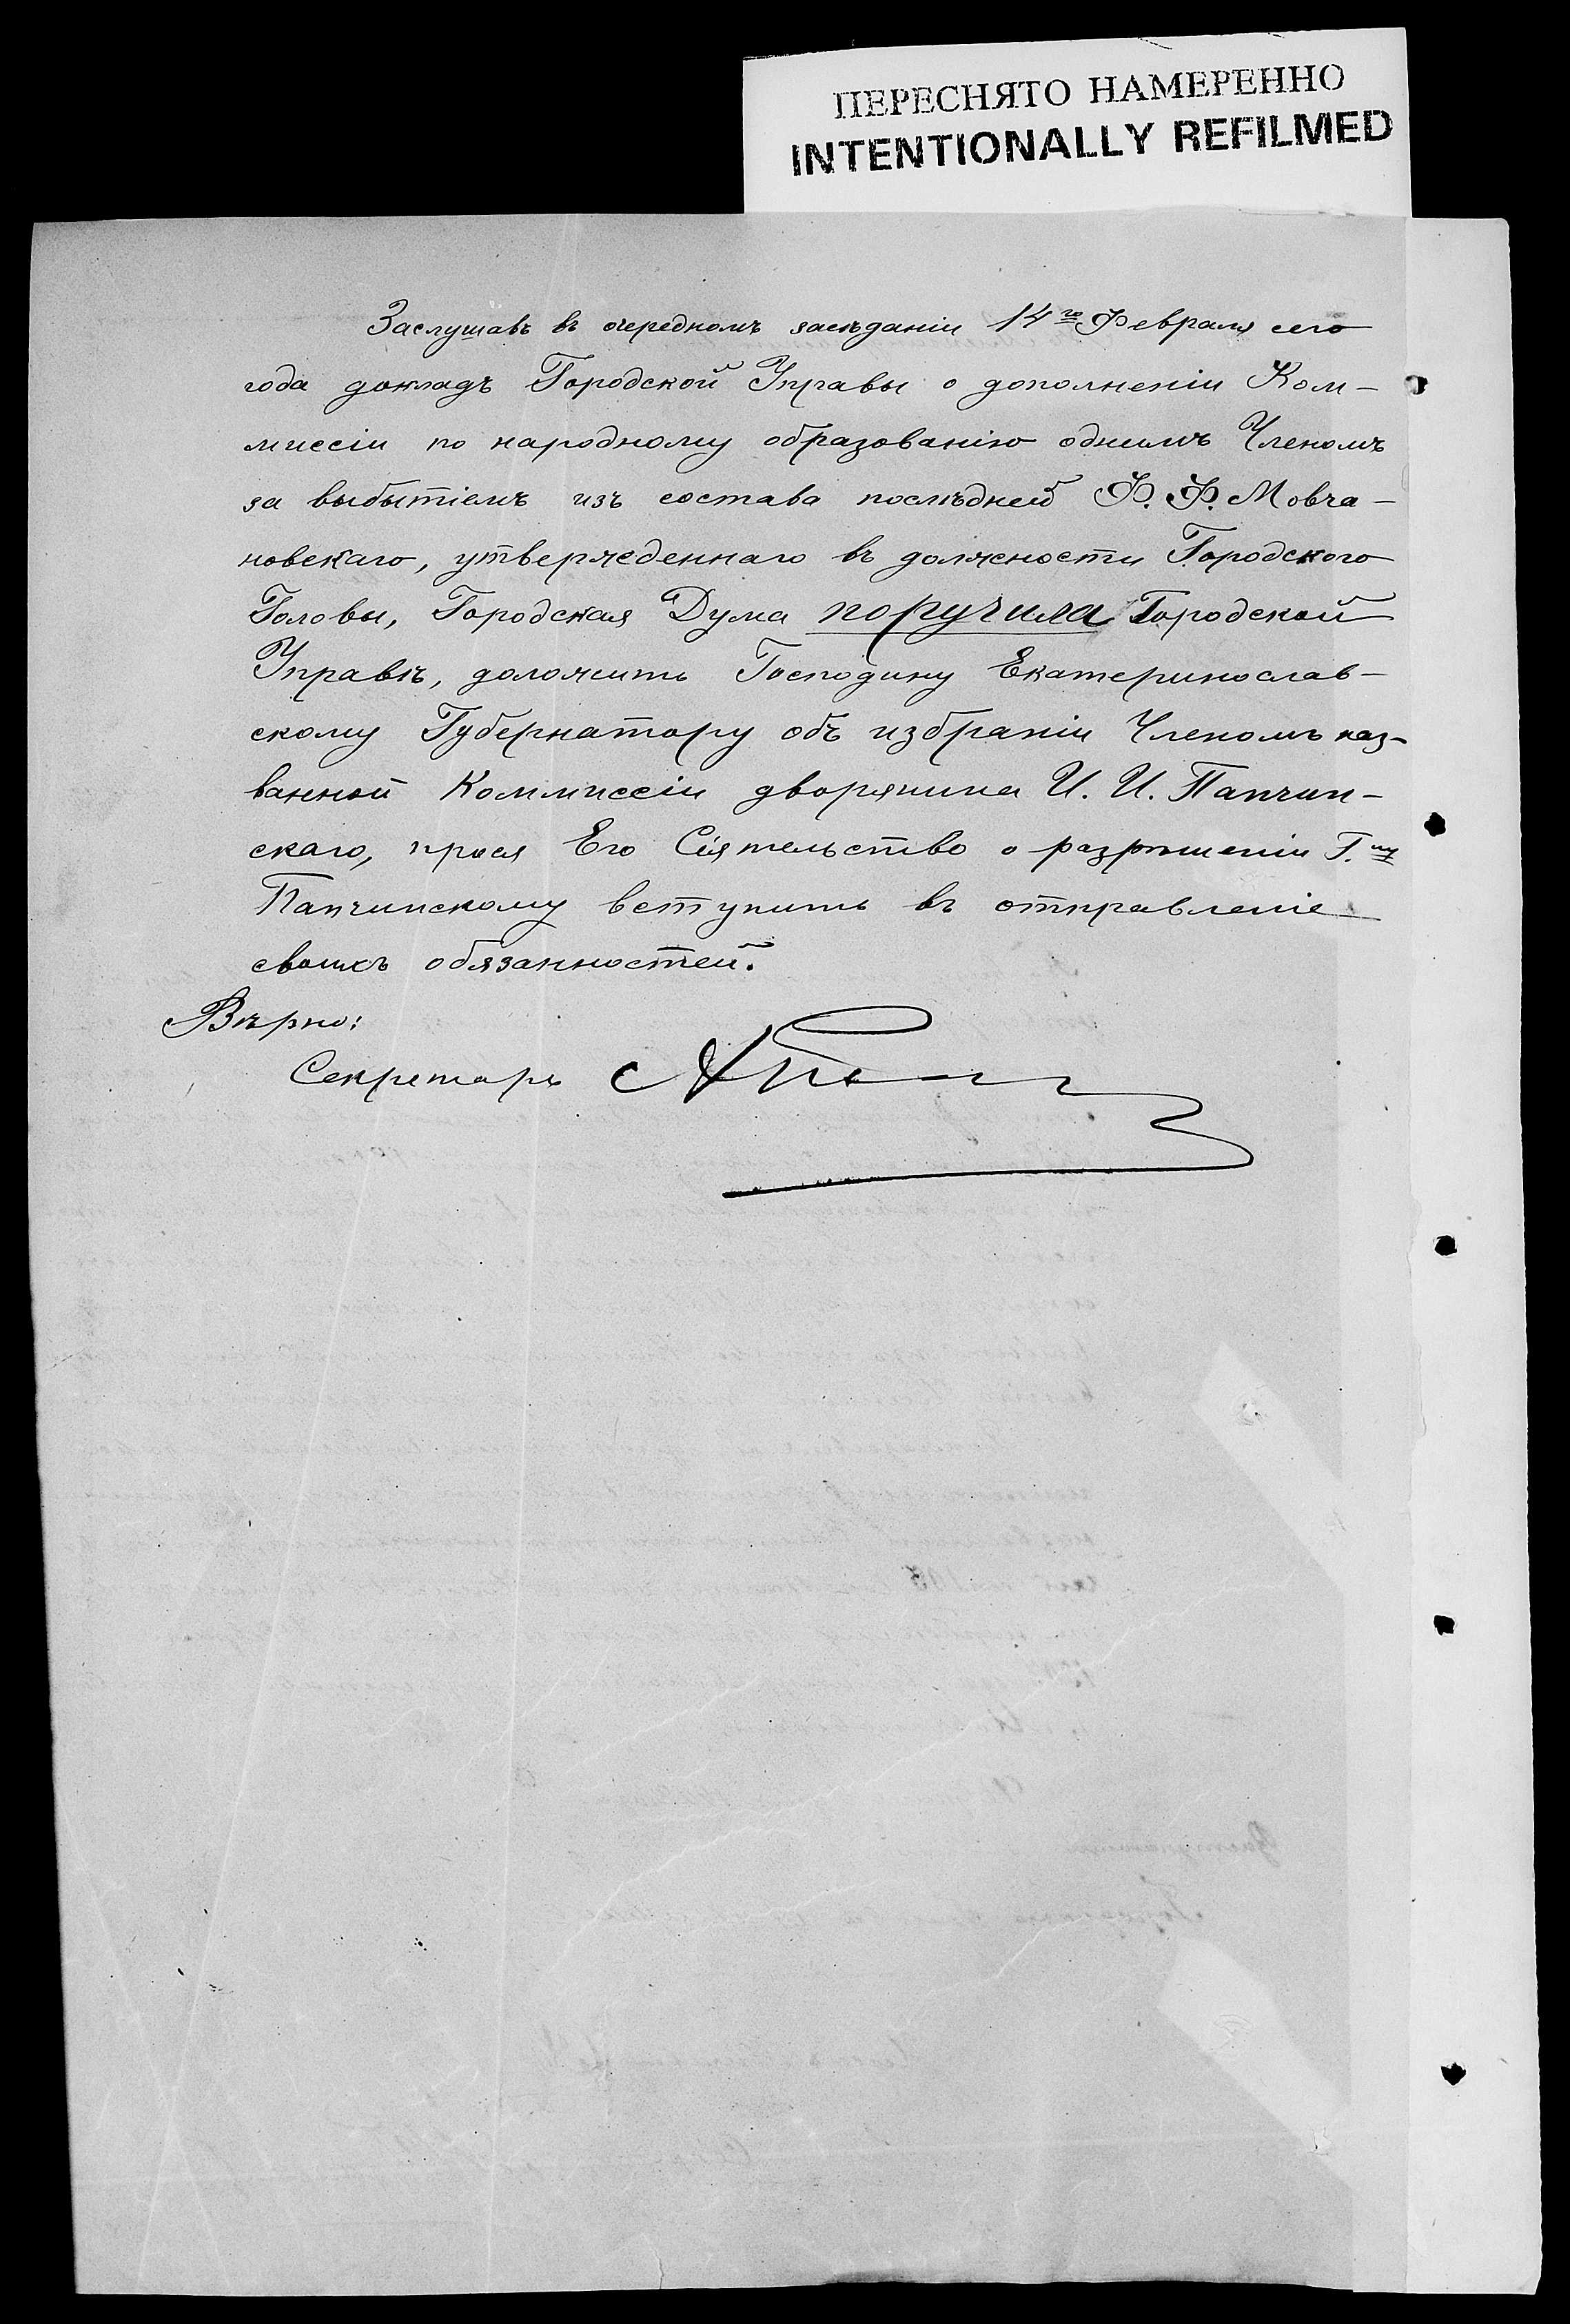 ПЕРЕСНЯТО НАМЕРЕННО
INTENTIONALLY REFILMED
Заслушавъ въ очередномъ засѣданіи 14го Февраля сего
года докладъ Городской Управы о дополненіи Ком-
миссіи по народному образованію однимъ Членомъ
за выбытіемъ изъ состава послѣдней Ф. Ф. Мовча-
новскаго, утвержденнаго въ должности Городского
Головы, Городская Дума поручила Городской
Управѣ, доложить Господину Екатеринослав-
скому Губернатору объ избраніи Членомъ наз-
ванной Коммиссіи дворянина И. И. Папчин-
скаго, прося Его Сіятельство о разрѣшеніи Г.ну
Папчинскому вступить въ отправленіе
своихъ обязанностей.
Вѣрно:
Секретарь